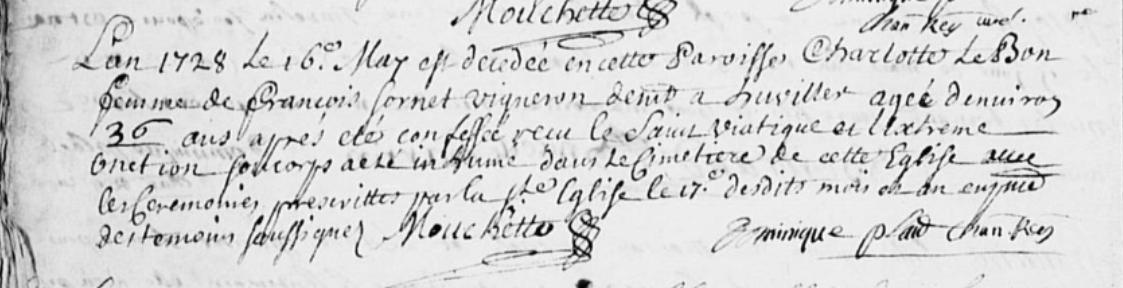 Mouchette
Chan Rey curé.
L'an 1728 le 16e. May est decedée en cette Paroisse Charlotte le Bon
femme de François Sornet vigneron demt a huviller agée d'environ
36 ans aprés eté confessée recu le Saint Viatique et l'extreme
Onction son corps a ete inhumé dans le Cimetiere de cette Eglise avec
les Ceremonies prescrittes par la ste Eglise le 17e. desdits mois et an en pnce
des temoins soussignez Mouchette Dominique Chan. Rey